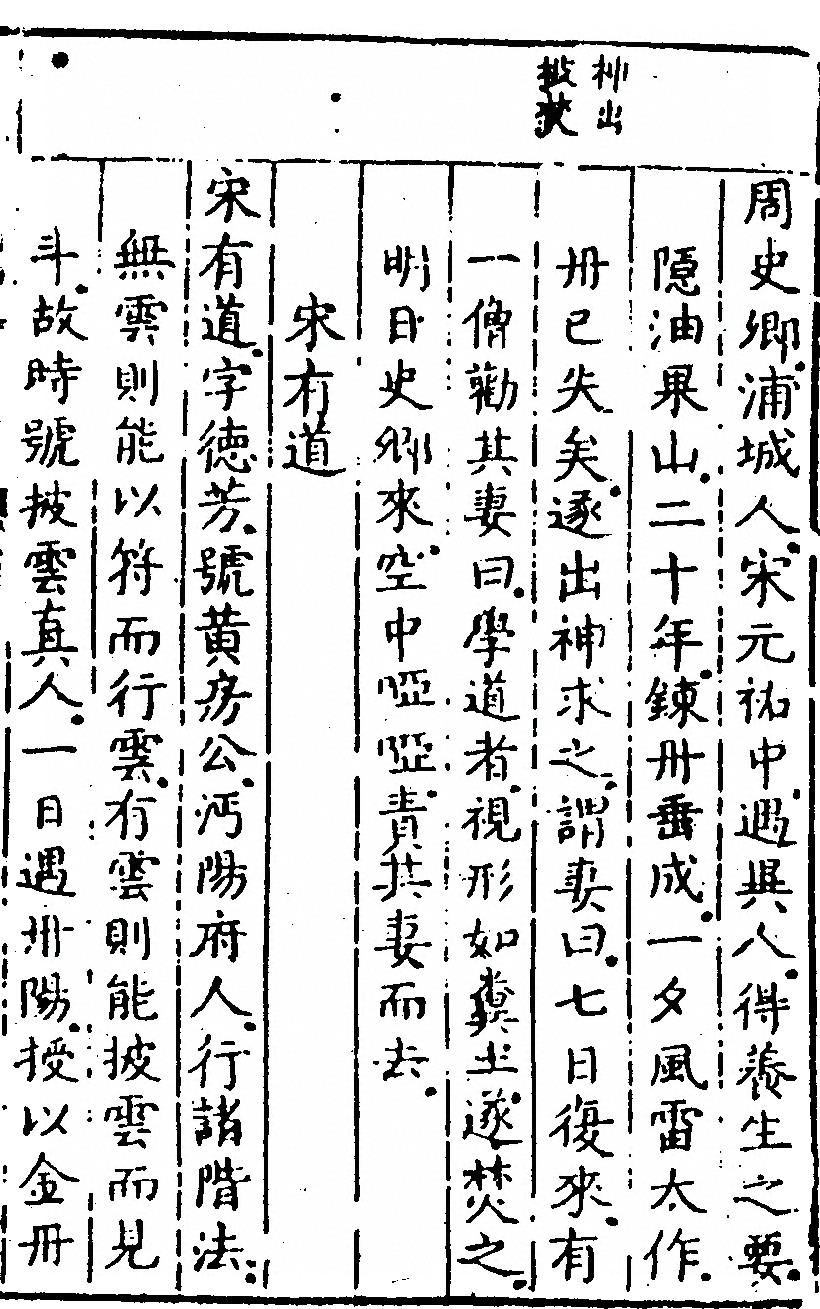 周史卿浦城人宋元祐中遇異人得養生之要
隱油果山二十年鍊丹垂成一夕風雷大作
丹已失矣遂出神求之謂妻曰七日復來有
一僧勸其妻曰學道者視形如糞土遂焚之
明日史卿來空中啞啞責其妻而去
宋有道
宋有道字德芳號黃房公沔陽府人行諸階法
無雲則能以符而行雲有雲則能披雲而見
斗故時號披雲真人一日遇丹陽授以金丹